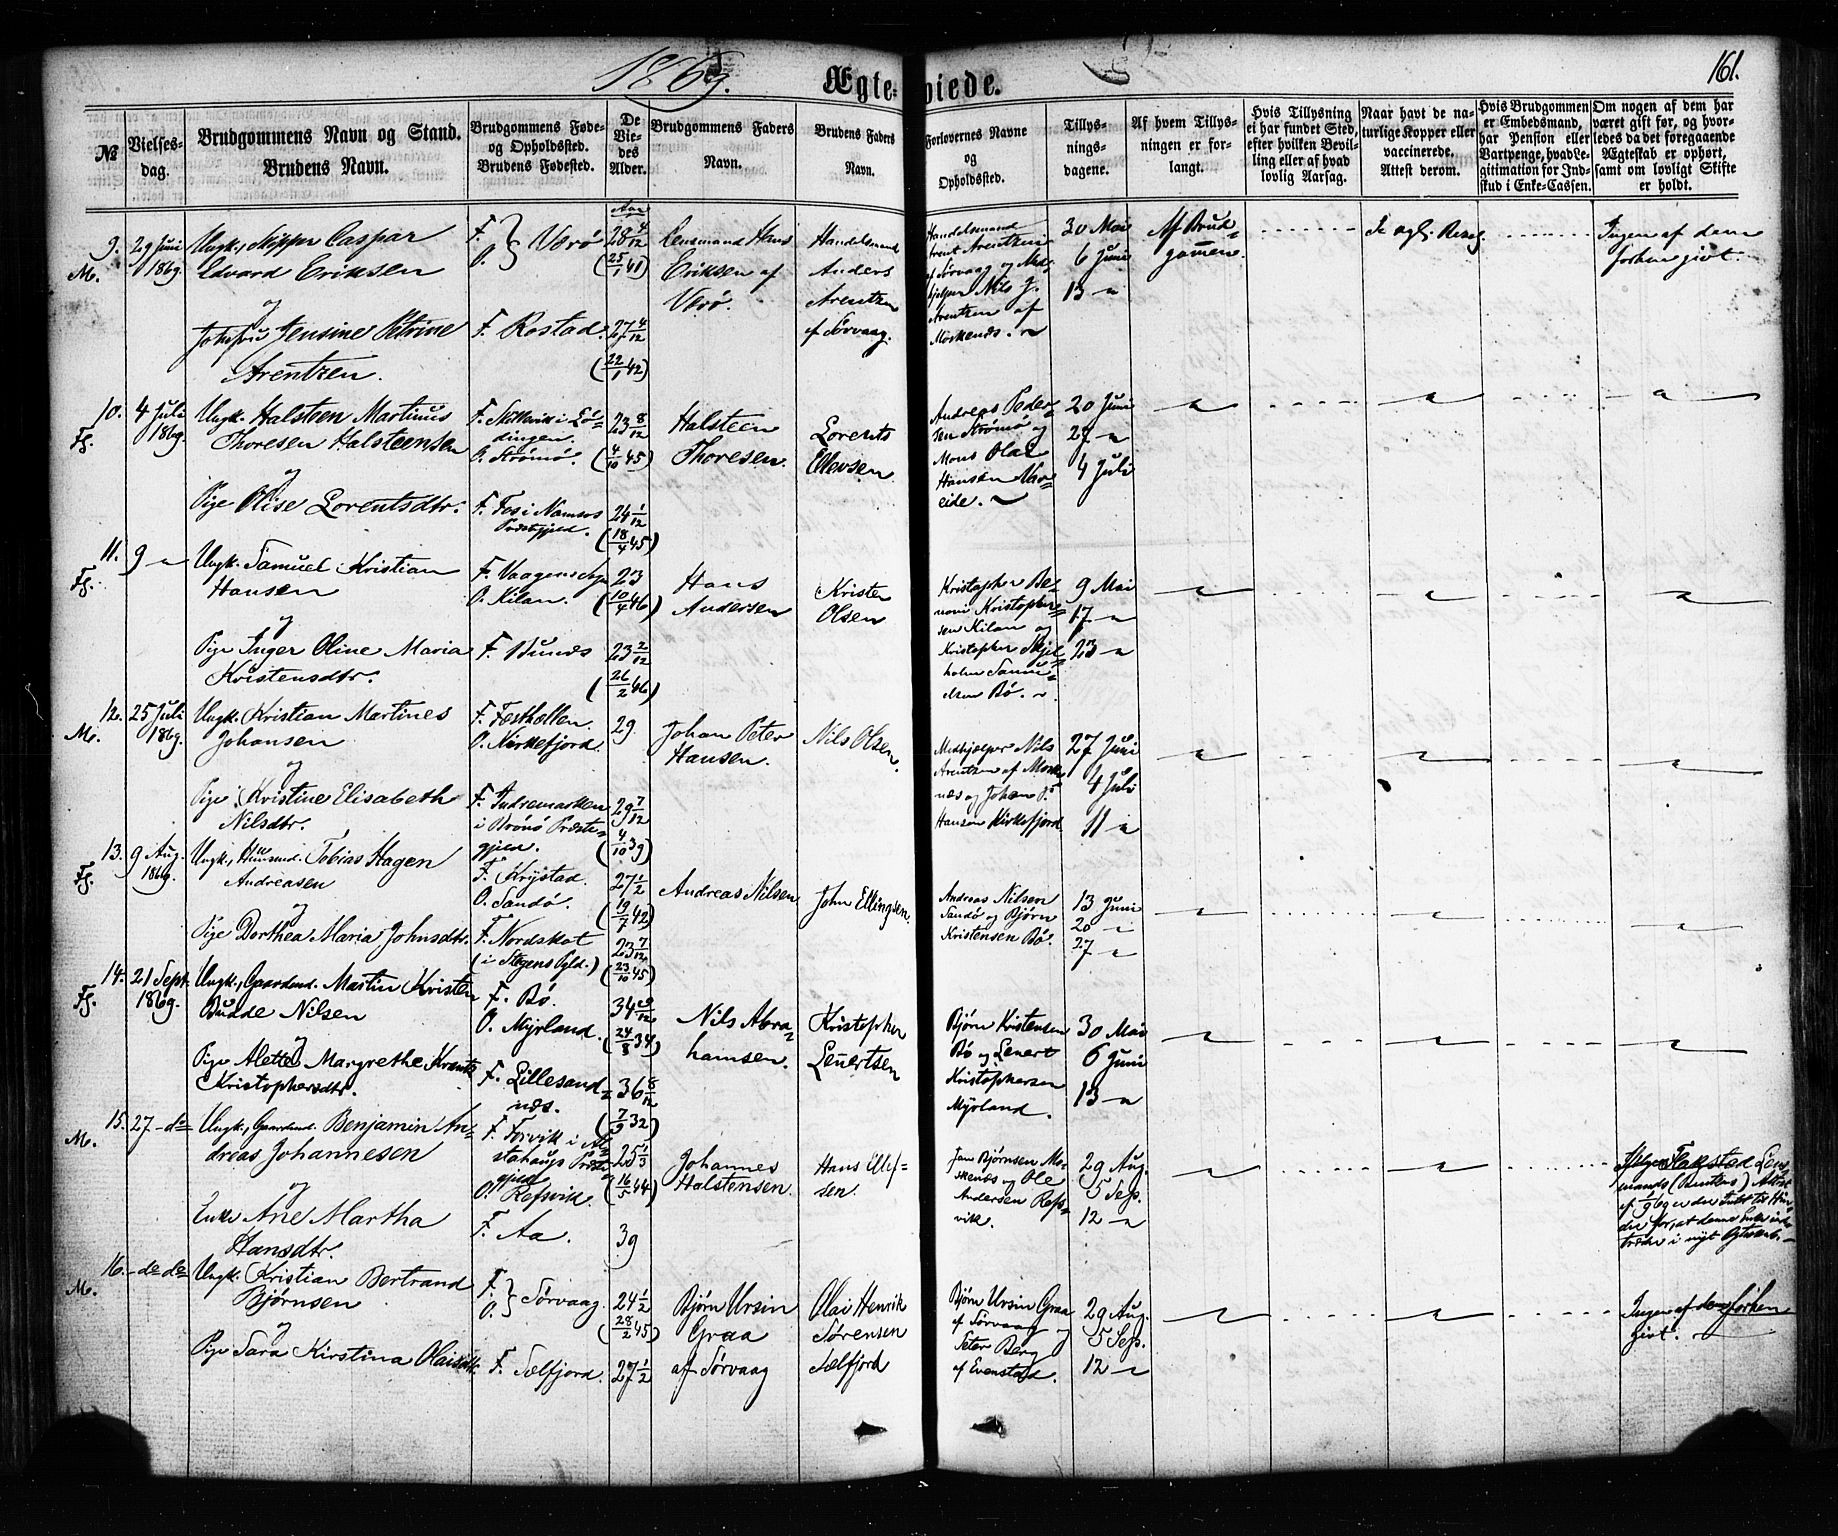 1869.
Ægteviede.
161.
№
Vielses-
dag.
Brudgommens Navn og Stand.
Brudens Navn.
Brudgommens Føde-
og Opholdssted.
Brudens Fødested.
De
Vie-
des
Alder.
Brudgommens Faders
Navn.
Brudens Faders
Navn.
Forlovernes Navne
og
Opholdssted.
Tillys-
nings-
dagene.
Af hvem Tillys-
ningen er for-
langt.
Hvis Tillysning
ei har fundet Sted,
efter hvilken Bevil-
ling eller af hvad
lovlig Aarsag.
Naar havt de na-
turlige Kopper eller
vaccinerede.
Attest derom.
Hvis Brudgommen
er Embedsmand,
har Pension eller
Vartpenge, hvad Le-
gitimation for Ind-
skud i Enke-Cassen.
Om nogen af dem har
været gift før, og hvor-
ledes da det foregaaende
Ægteskab er ophørt,
samt om lovligt Skifte
er holdt.
9.
M.
29 Juni
1869.
Ungk., Skipper Caspar
Edvard Eriksen
og
Jomfru Jensine Petrine
Arentzen.
F.
O. } Værø
F. Rostad.
Aar
28 4/12
(25/1 41)
27 4/12
(22/1 42)
Lensmand Hans
Eriksen af
Værø.
Handelsmand
Anders
Arentzen
af Sørvaag.
Handelsmand
Arnt Arentzen
af Sørvaag og Med-
hjelper Nils J.
Arentzen af
Moskenæs.
30 Mai
6 Juni
13 "
Af Brud-
gommen.
Ingen af dem
forhen givt.
10.
Fl.
4 Juli
1869.
Ungk. Halsteen Martinus
Thoresen Halsteensen
og
Pige Olise Lorentsdtr.
F. i Lö-
dingen.
O. Strömö.
F. Fos i Namsos
Præstegjeld.
23 8/12
(4/10 45)
24 1/12
(18/4 45)
Halsteen
Thoresen.
Lorents
Ellevsen
Andreas Peder-
sen Strömö og
Mons Olai
Hansen Nav-
eide.
20 Juni
27 "
4 Juli
11.
Fl.
9 "
Ungk. Samuel Kristian
Hansen
og
Pige Inger Oline Maria
Kristensdtr.
F. Vaagens
O. Kilan.
F. Bunæs
23
(10/4 46)
23 2/12
(26/2 46)
Hans
Andersen
Kristen
Olsen
Kristopher Be-
noni Kristopher-
sen Kilan og
Kristopher Skjel-
holm Samu-
elsen Bö.
9 Mai
17 "
23 "
12.
M.
25 Juli
1869.
Ungk. Kristian Martines
Johansen
og
Pige Kristine Elisabeth
Nilsdtr.
F. Fæsthællen
O. Kirkefjord.
F. Indremarken
i Brönö Præste-
gjeld.
29
29 7/12
(4/10 39)
Johan Peter
Hansen.
Nils Olsen.
Medhjælper Nils
Arentzen af Mosk-
næs og Johan P.
Hansen Kirkefjord
27 Juni
4 Juli
11 "
13.
Fl.
9 Aug.
1869.
Ungk., Huusmd. Tobias Hagen
Andreasen
og
Pige Dorthea Maria Johnsdtr.
F. Krystad.
O. Sandö.
F. Nordskot
(i Stegens Pgld.)
27 1/2
(19/7 42)
23 7/12
(23/10 45)
Andreas Nilsen
John Ellingsen.
Andreas Nilsen
Sandö og Bjørn
Kristensen Bö.
13 Juni
20 "
27 "
14.
Fl.
21 Sept.
1869.
Ungk., Gaardmd. Martin Kristen
Budde Nilsen
og
Pige Alette Margrethe Krantz
Kristophersdtr.
F. Bö.
O. Myrland.
F. Lillesand-
næs.
34
(24/8 34)
36 8/12
(7/9 32)
Nils Abra-
hamsen.
Kristopher
Lenertsen
Bjørn Kristensen
Bö og Lenert
Kristophersen
Myrland.
30 Mai
6 Juni
13 "
15.
M.
27 - do
Ungk., Gaardmd. Benjamin An-
dreas Johannesen
og
Enke Ane Martha
Hansdtr.
F. Forvik i Al-
stahaugs Præste-
gjeld
O. Refsvik.
F. Aa.
25 1/3
(16/5 44)
39
Johannes
Halstensen.
Hans Ellef-
sen.
Jens Bjørnsen Mo-
skenæs og Ole
Andersen Refs-
vik.
29 Aug.
5 Sep.
12 "
Ifølge Flakstad Lens-
mands (Bentens) Attest
af 1/9 69 er der Intet til Hin-
der for, at denne Enke ind-
træder i nyt Ægteskab.
16.
M.
- do do
Ungk. Kristian Bertrand
Bjørnsen
og
Pige Sara Kirstina Olaisdtr.
F.
O. } Sørvaag.
F. Sælfjord.
24 1/2
(28/2 45)
27 1/2
Bjørn Ursin
Graa
af Sørvaag
Olai Henrik
Sørensen
Sælfjord
Bjørn Ursin Graa
af Sørvaag og
Peter Berg
af Evenstad.
29 Aug.
5 Sep.
12 "
Ingen af dem forhen
givt.